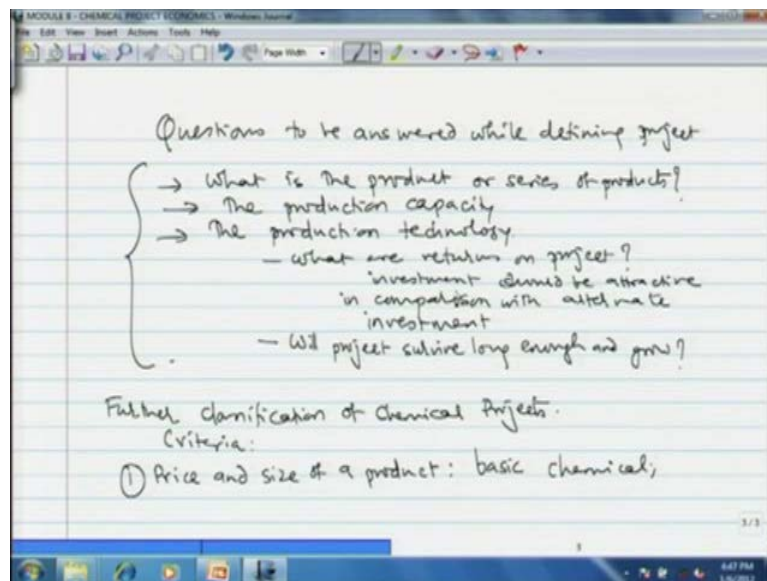 MODULE 8 - CHEMICAL PROJECT ECONOMICS - Windows Journal
File Edit View Insert Actions Tools Help
Page Width
Questions to be answered while defining project
→ What is the product or series of products?
→ The production capacity
→ The production technology
- what are returns on project?
investment should be attractive
in comparison with alternate
investment
- Will project survive long enough and grow?
Further classification of Chemical Projects.
Criteria:
① Price and size of a product: basic chemical;
3/3
3
6:47 PM